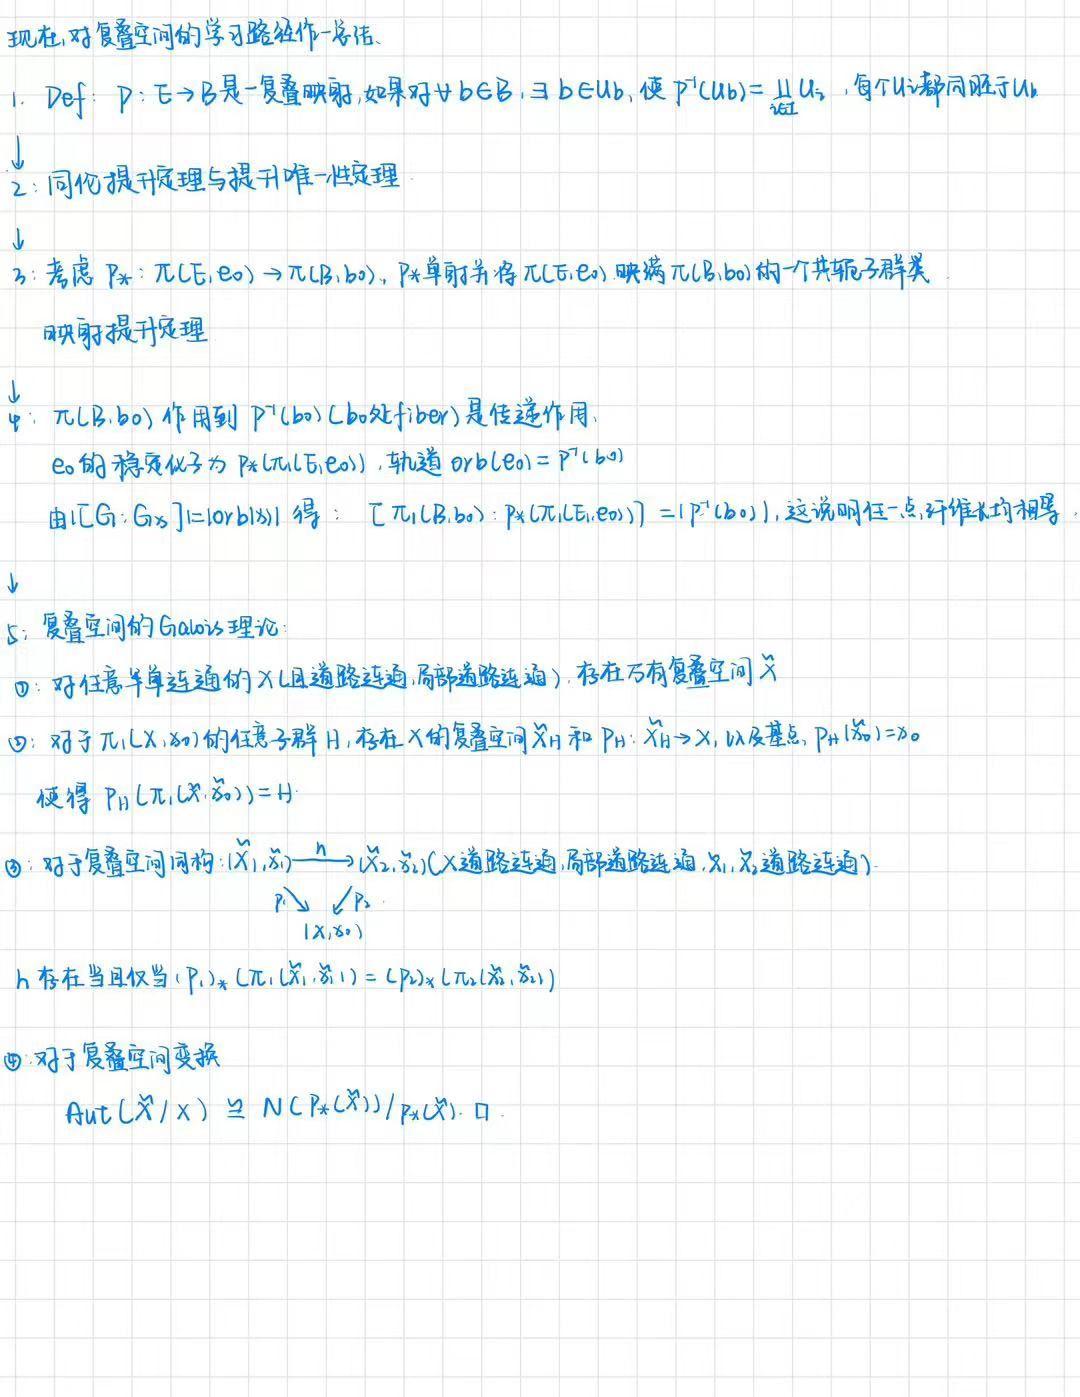 现在,对复叠空间的学习路径作一总结.
1. Def: P: E→B是一复叠映射,如果对∀b∈B,∃b∈Ub,使P⁻¹(Ub)=∐Ui,每个Ui都同胚于Ub
i∈I
↓
2: 同伦提升定理与提升唯一性定理.
↓
3: 考虑 P*: π(E,e0)→π(B,b0), P*单射并将π(E,e0)映满π(B,b0)的一个共轭子群类.
映射提升定理
↓
4: π(B,b0)作用到P⁻¹(b0)(b0处fiber)是传递作用.
e0的稳定化子为P*(π1(E,e0)),轨道orb(e0)=P⁻¹(b0)
由|[G:Gx]|=|orb(x)| 得: [π1(B,b0):P*(π1(E,e0))]=|P⁻¹(b0)|,这说明任一点纤维长均相等.
↓
5: 复叠空间的Galois理论:
①: 对任意半单连通的X(且道路连通,局部道路连通),存在万有复叠空间X̃
②: 对于π1(X,x0)的任意子群H,存在X的复叠空间X̃H和PH: X̃H→X,以及基点,PH(x̃0)=x0
使得 PH(π1(X̃,x̃0))=H.
③: 对于复叠空间同构:(X̃1,x̃1) h→ (X̃2,x̃2)(X道路连通,局部道路连通,X̃1,X̃2道路连通).
P1↘ ↙P2
(X,x0)
h存在当且仅当(P1)*(π1(X̃1,x̃1))=(P2)*(π2(X̃2,x̃2))
④: 对于复叠空间变换
Aut(X̃/X) ≌ N(P*(X̃))/P*(X̃). □.